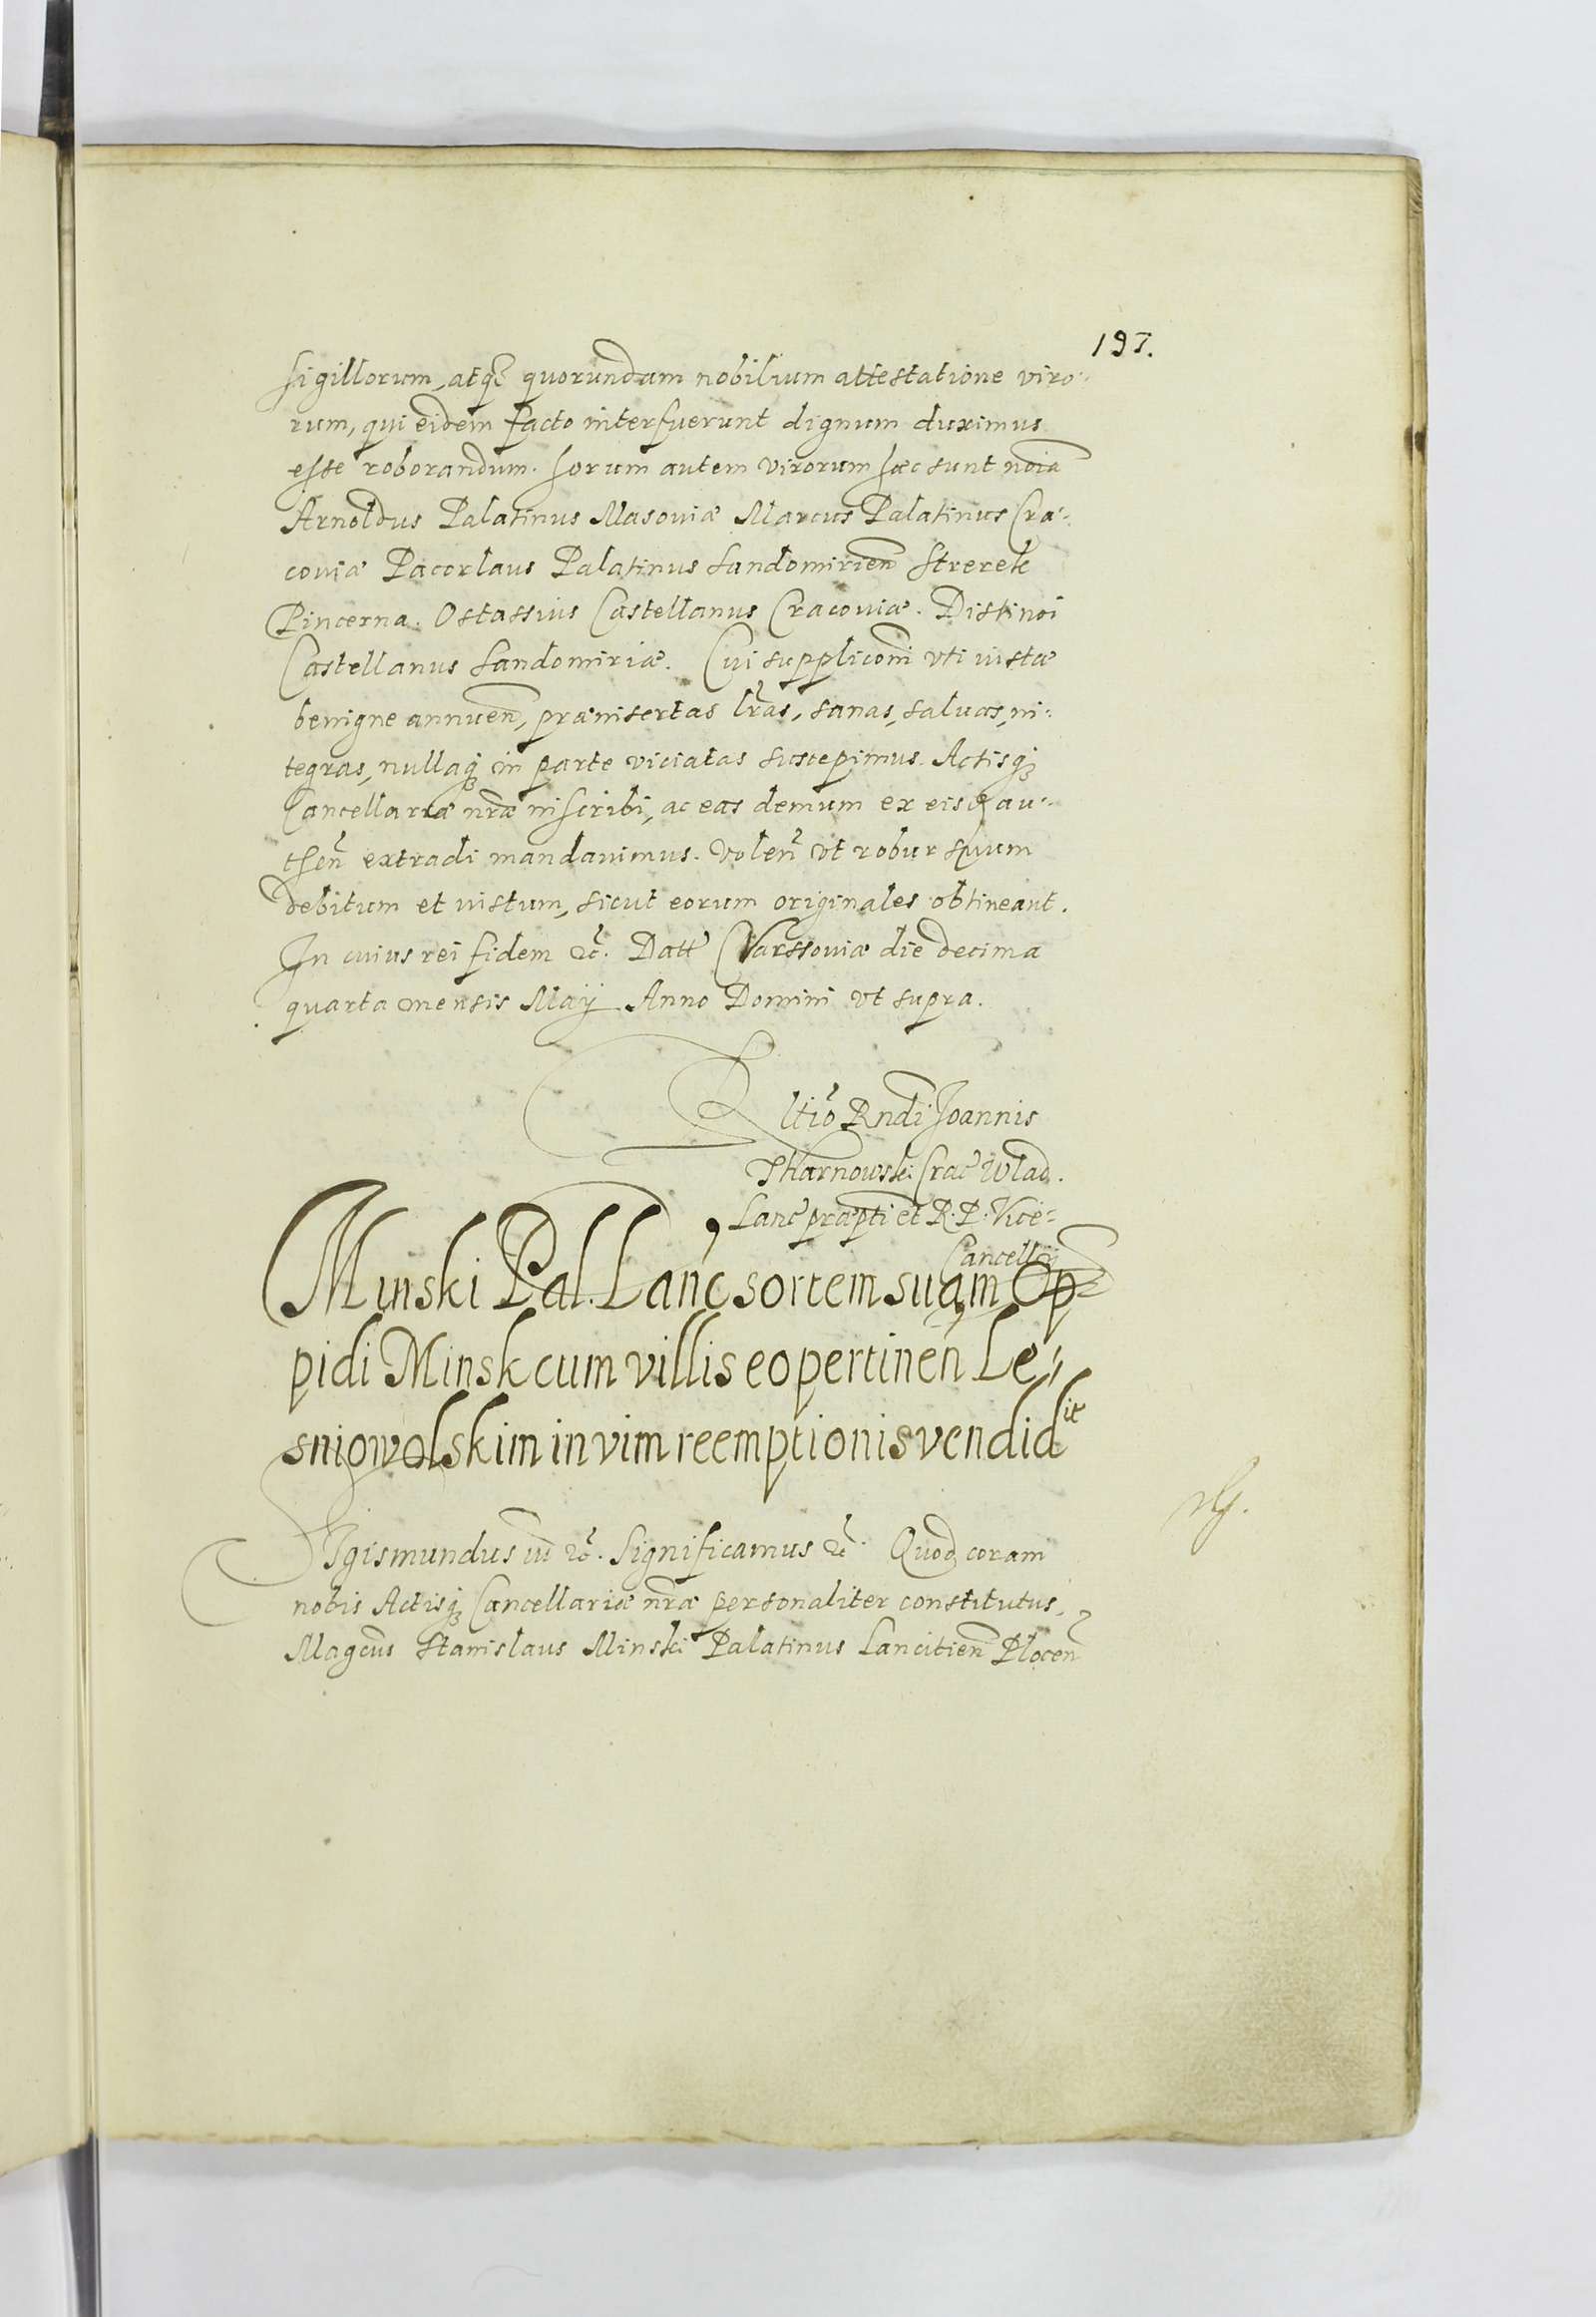 197.
sigillorum, atq₃ quorundam nobilium attestatione viro-
rum, qui eidem facto interfuerunt dignum duximus
esse roborandum. horum autem virorum hæc sunt noīa
Arnoldus Palatinus Masoviæ Marcus Palatinus Cra-
coviæ Pacorlaus Palatinus Sandomirien̄ Strerek
Pincerna. Ostassius Castellanus Cracoviæ. Distinoi
Castellanus Sandomiriæ. Cui supplicōni vti iustæ
benigne annuen̄, præinsertas lr̄as, sanas, saluas, in-
tegras, nullaq₃ in parte viciatas suscepimus. Actisq₃
Cancellariæ nr̄æ inscribi, ac eas demum ex eisd au-
then̄ extradi mandauimus. Volen̄ vt robur suum
debitum et iustum, sicut eorum originales obtineant.
In cuius rei fidem &c̄. Datt Varssouiæ die decima
quarta mensis Maÿ Anno Domini vt supra.
Rltīo Rndi Joannis
Tharnowski Crac̄ Wlad.
Lanc̄ præpti et R. P. Vice-
Cancellrÿ
Minski Pal. Lanc̄ sortem suam Op-
pidi Minsk cum villis eo pertinen̄ Le-
sniowolskim in vim reemptionis vendidit
Sigismundus iii &c̄. Significamus &c̄. Quod coram
nobis Actisq₃ Cancellariæ nr̄æ personaliter constitutus,
Magcus Stanislaus Minski Palatinus Lancitien̄ Plocen̄